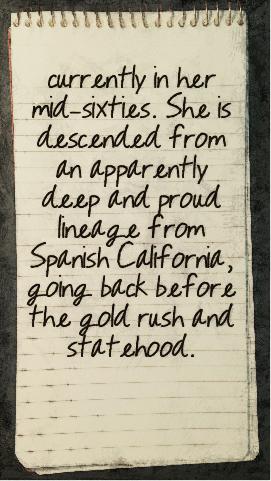 currently in her
mid-sixties. She is
descended from
an apparently
deep and proud
lineage from
Spanish California,
going back before
the gold rush and
statehood.